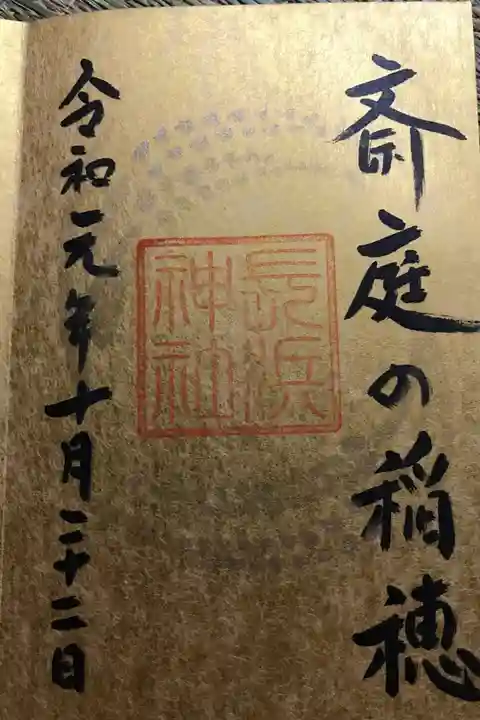 斎庭の稲穂
長浜
神社
令和元年十月二十二日